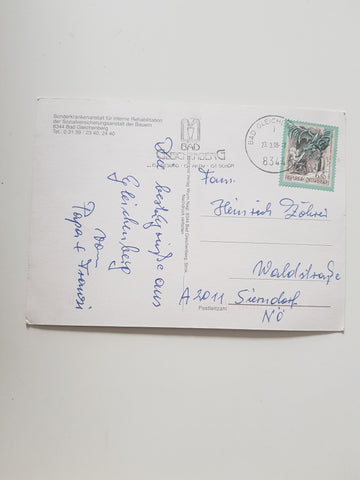 Sonderkrankenanstalt für interne Rehabilitation
der Sozialversicherungsanstalt der Bauern
8344 Bad Gleichenberg
Tel. 0 31 59 / 23 40, 24 40
BAD
GLEICHENBERG
BAD GLEICHENBERG
8344
REPUBLIK ÖSTERREICH
Die herzlichsten Grüße aus
Gleichenberg
von
Papa + Franzi
Fam.
Heinrich
Waldstraße
A 2011 Sierndorf
NÖ
Postleitzahl